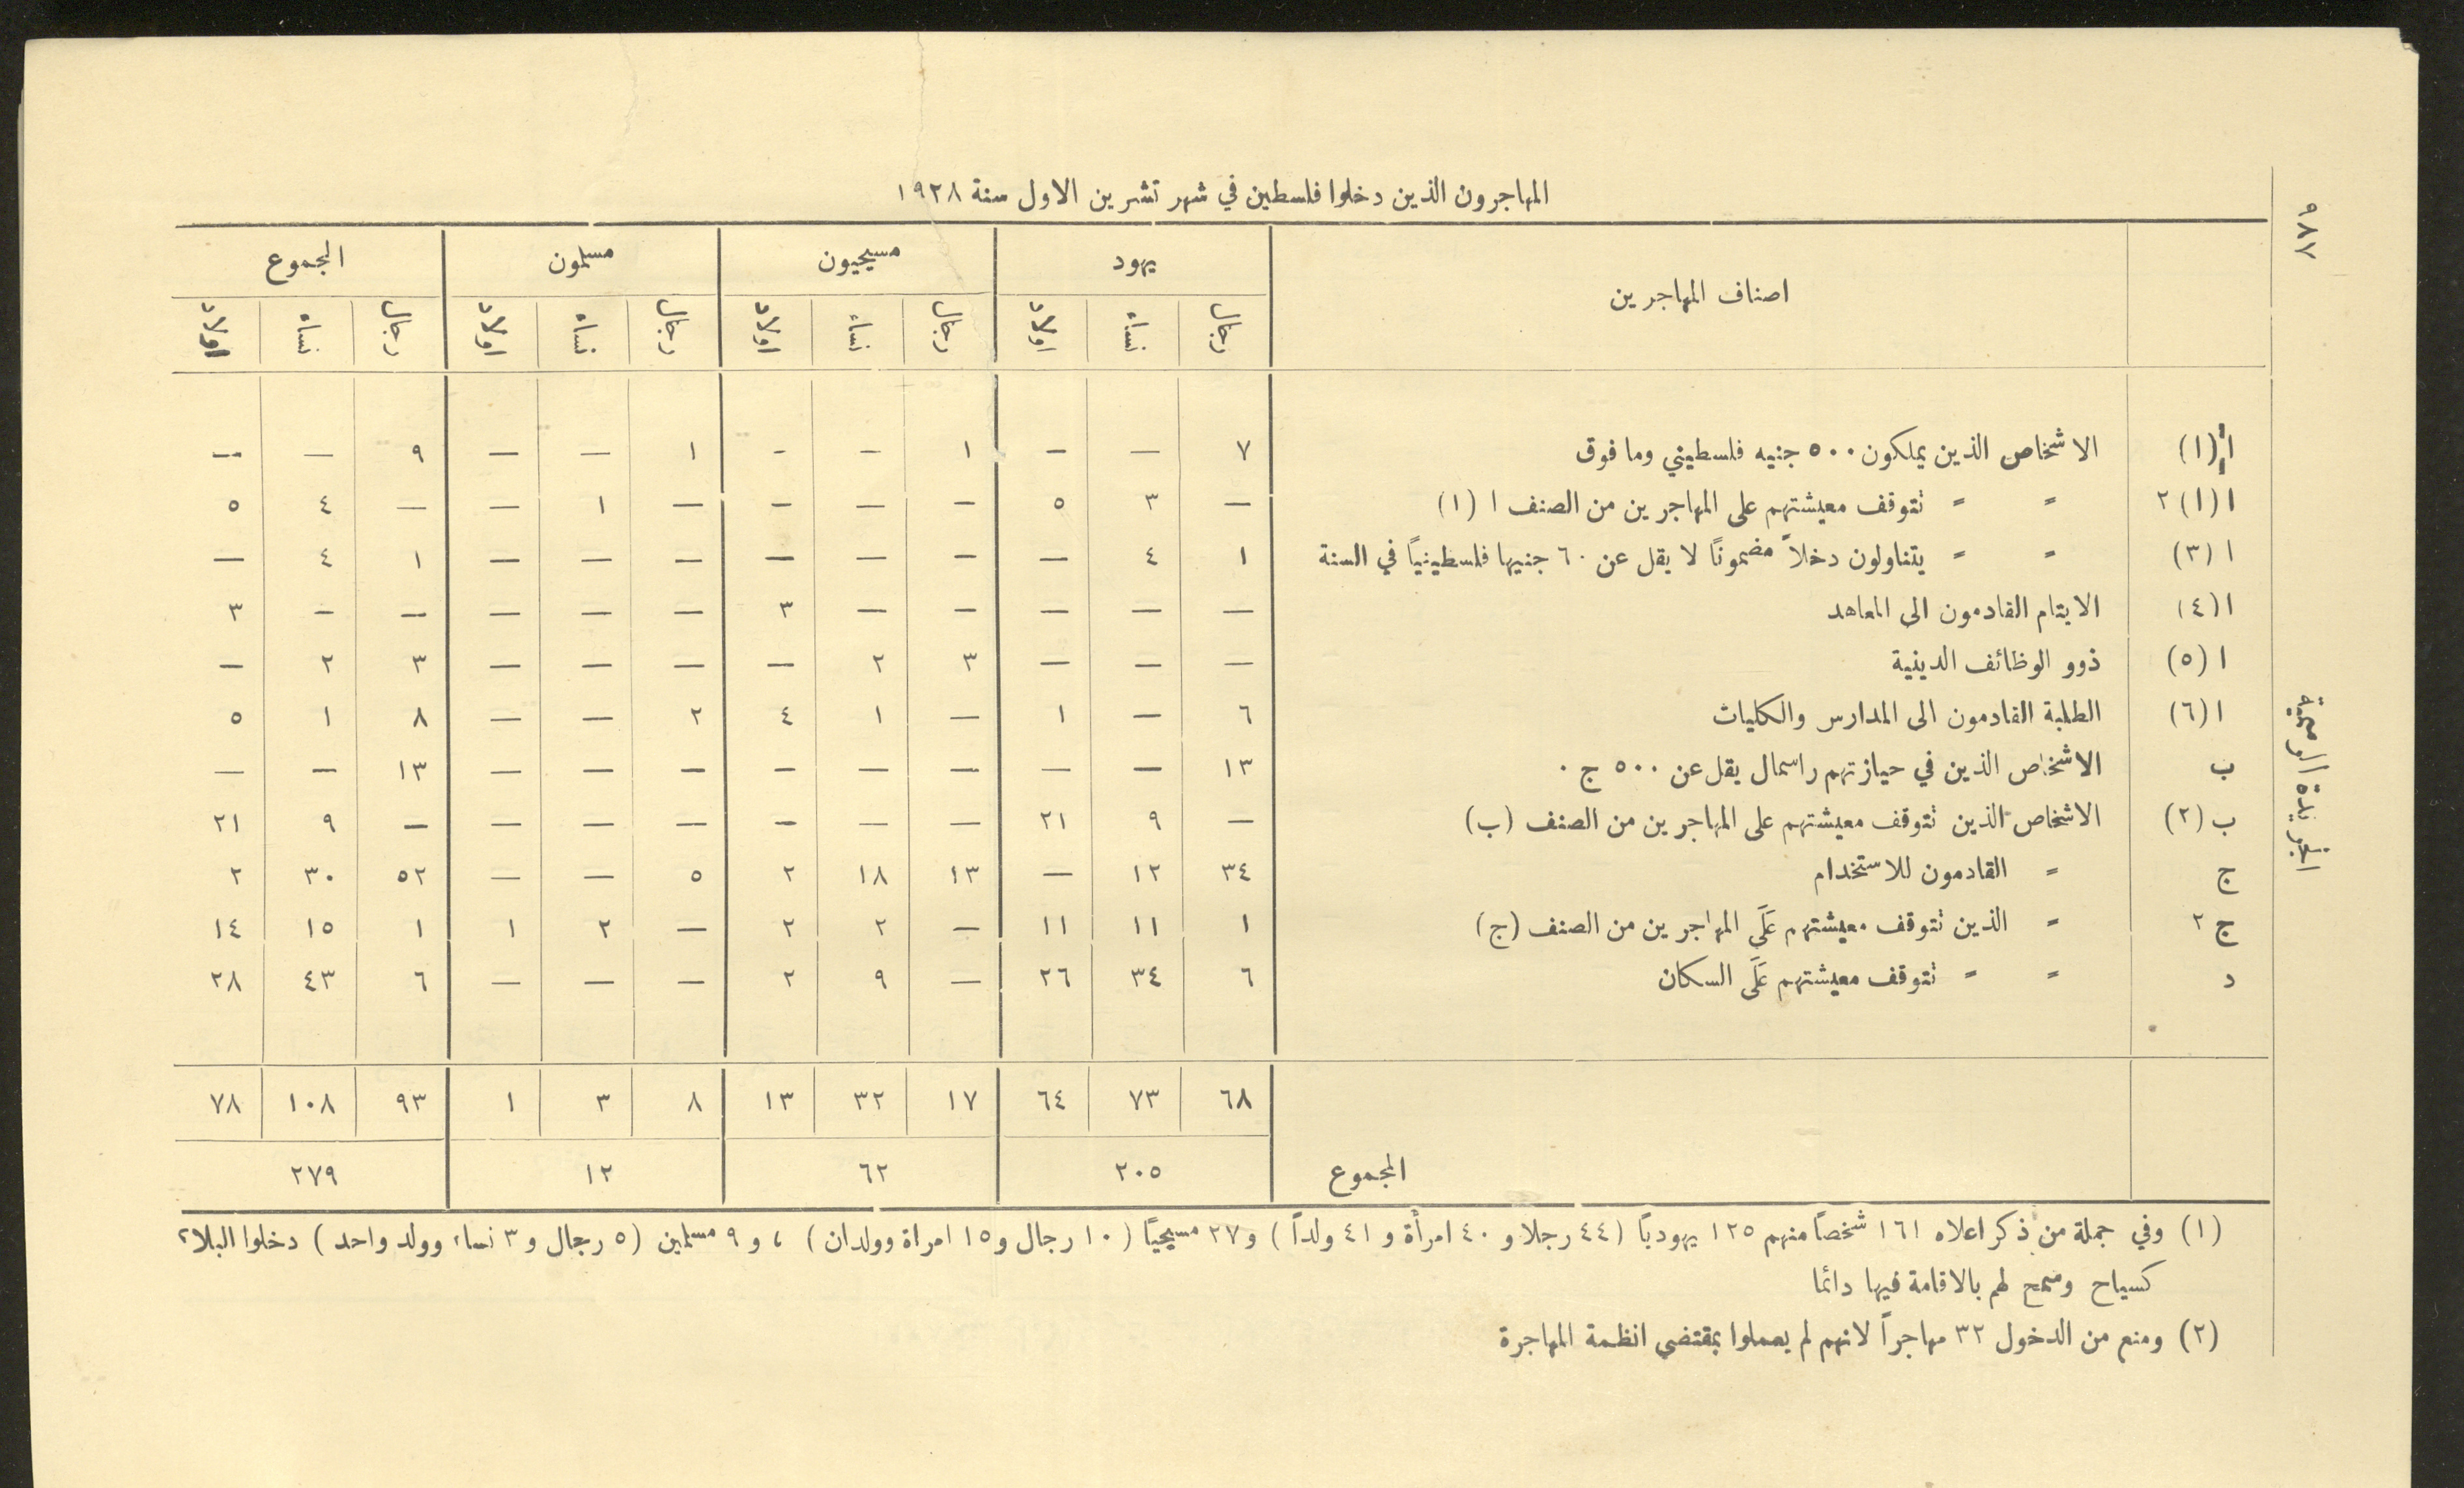 ٩٨٧
الجريدة الرسمية
المهاجرون الذين دخلوا فلسطين في شهر تشرين الاول سنة ١٩٢٨
اصناف المهاجرين يهود مسيحيون مسلمون المجموع
رجال نساء اولاد رجال نساء اولاد رجال نساء اولاد رجال نساء اولاد
ا (١) الاشخاص الذين يملكون ٥٠٠ جنيه فلسطيني وما فوق ٧ — — ١ — — ١ — — ٩ — —
ا (١) ٢ = = تتوقف معيشتهم على المهاجرين من الصنف ا (١) — ٣ ٥ — — — — ١ — — ٤ ٥
ا (٣) = = يتناولون دخلاً مضمونًا لا يقل عن ٦٠ جنيها فلسطينيًا في السنة ١ ٤ — — — — — — — ١ ٤ —
ا (٤) الايتام القادمون الى المعاهد — — — — — ٣ — — — — — ٣
ا (٥) ذوو الوظائف الدينية — — — ٣ ٢ — — — — ٣ ٢ —
ا (٦) الطلبة القادمون الى المدارس والكليات ٦ — ١ — ١ ٤ ٢ — — ٨ ١ ٥
ب الاشخاص الذين في حيازتهم راسمال يقل عن ٥٠٠ ج . ١٣ — — — — — — — — ١٣ — —
ب (٢) الاشخاص الذين تتوقف معيشتهم على المهاجرين من الصنف (ب) — ٩ ٢١ — — — — — — — ٩ ٢١
ج = القادمون للاستخدام ٣٤ ١٢ — ١٣ ١٨ ٢ ٥ — — ٥٢ ٣٠ ٢
ج ٢ = الذين تتوقف معيشتهم عَلَى المهاجرين من الصنف (ج) ١ ١١ ١١ — ٢ ٢ — ٢ ١ ١ ١٥ ١٤
د = = تتوقف معيشتهم عَلَى السكان ٦ ٣٤ ٢٦ — ٩ ٢ — — — ٦ ٤٣ ٢٨
٦٨ ٧٣ ٦٤ ١٧ ٣٢ ١٣ ٨ ٣ ١ ٩٣ ١٠٨ ٧٨
المجموع ٢٠٥ ٦٢ ١٢ ٢٧٩
(١) وفي جملة من ذكر اعلاه ١٦١ شخصاً منهم ١٢٥ يهوديًا (٤٤ رجلا و ٤٠ امرأة و ٤١ ولداً) و ٢٧ مسيحيًا (١٠ رجال و ١٥ امراة وولدان) ، و ٩ مسلمين (٥ رجال و ٣ نساء وولد واحد) دخلوا البلاد
كسياح وسمح لهم بالاقامة فيها دائما
(٢) ومنع من الدخول ٣٢ مهاجراً لانهم لم يعملوا بمقتضى انظمة المهاجرة